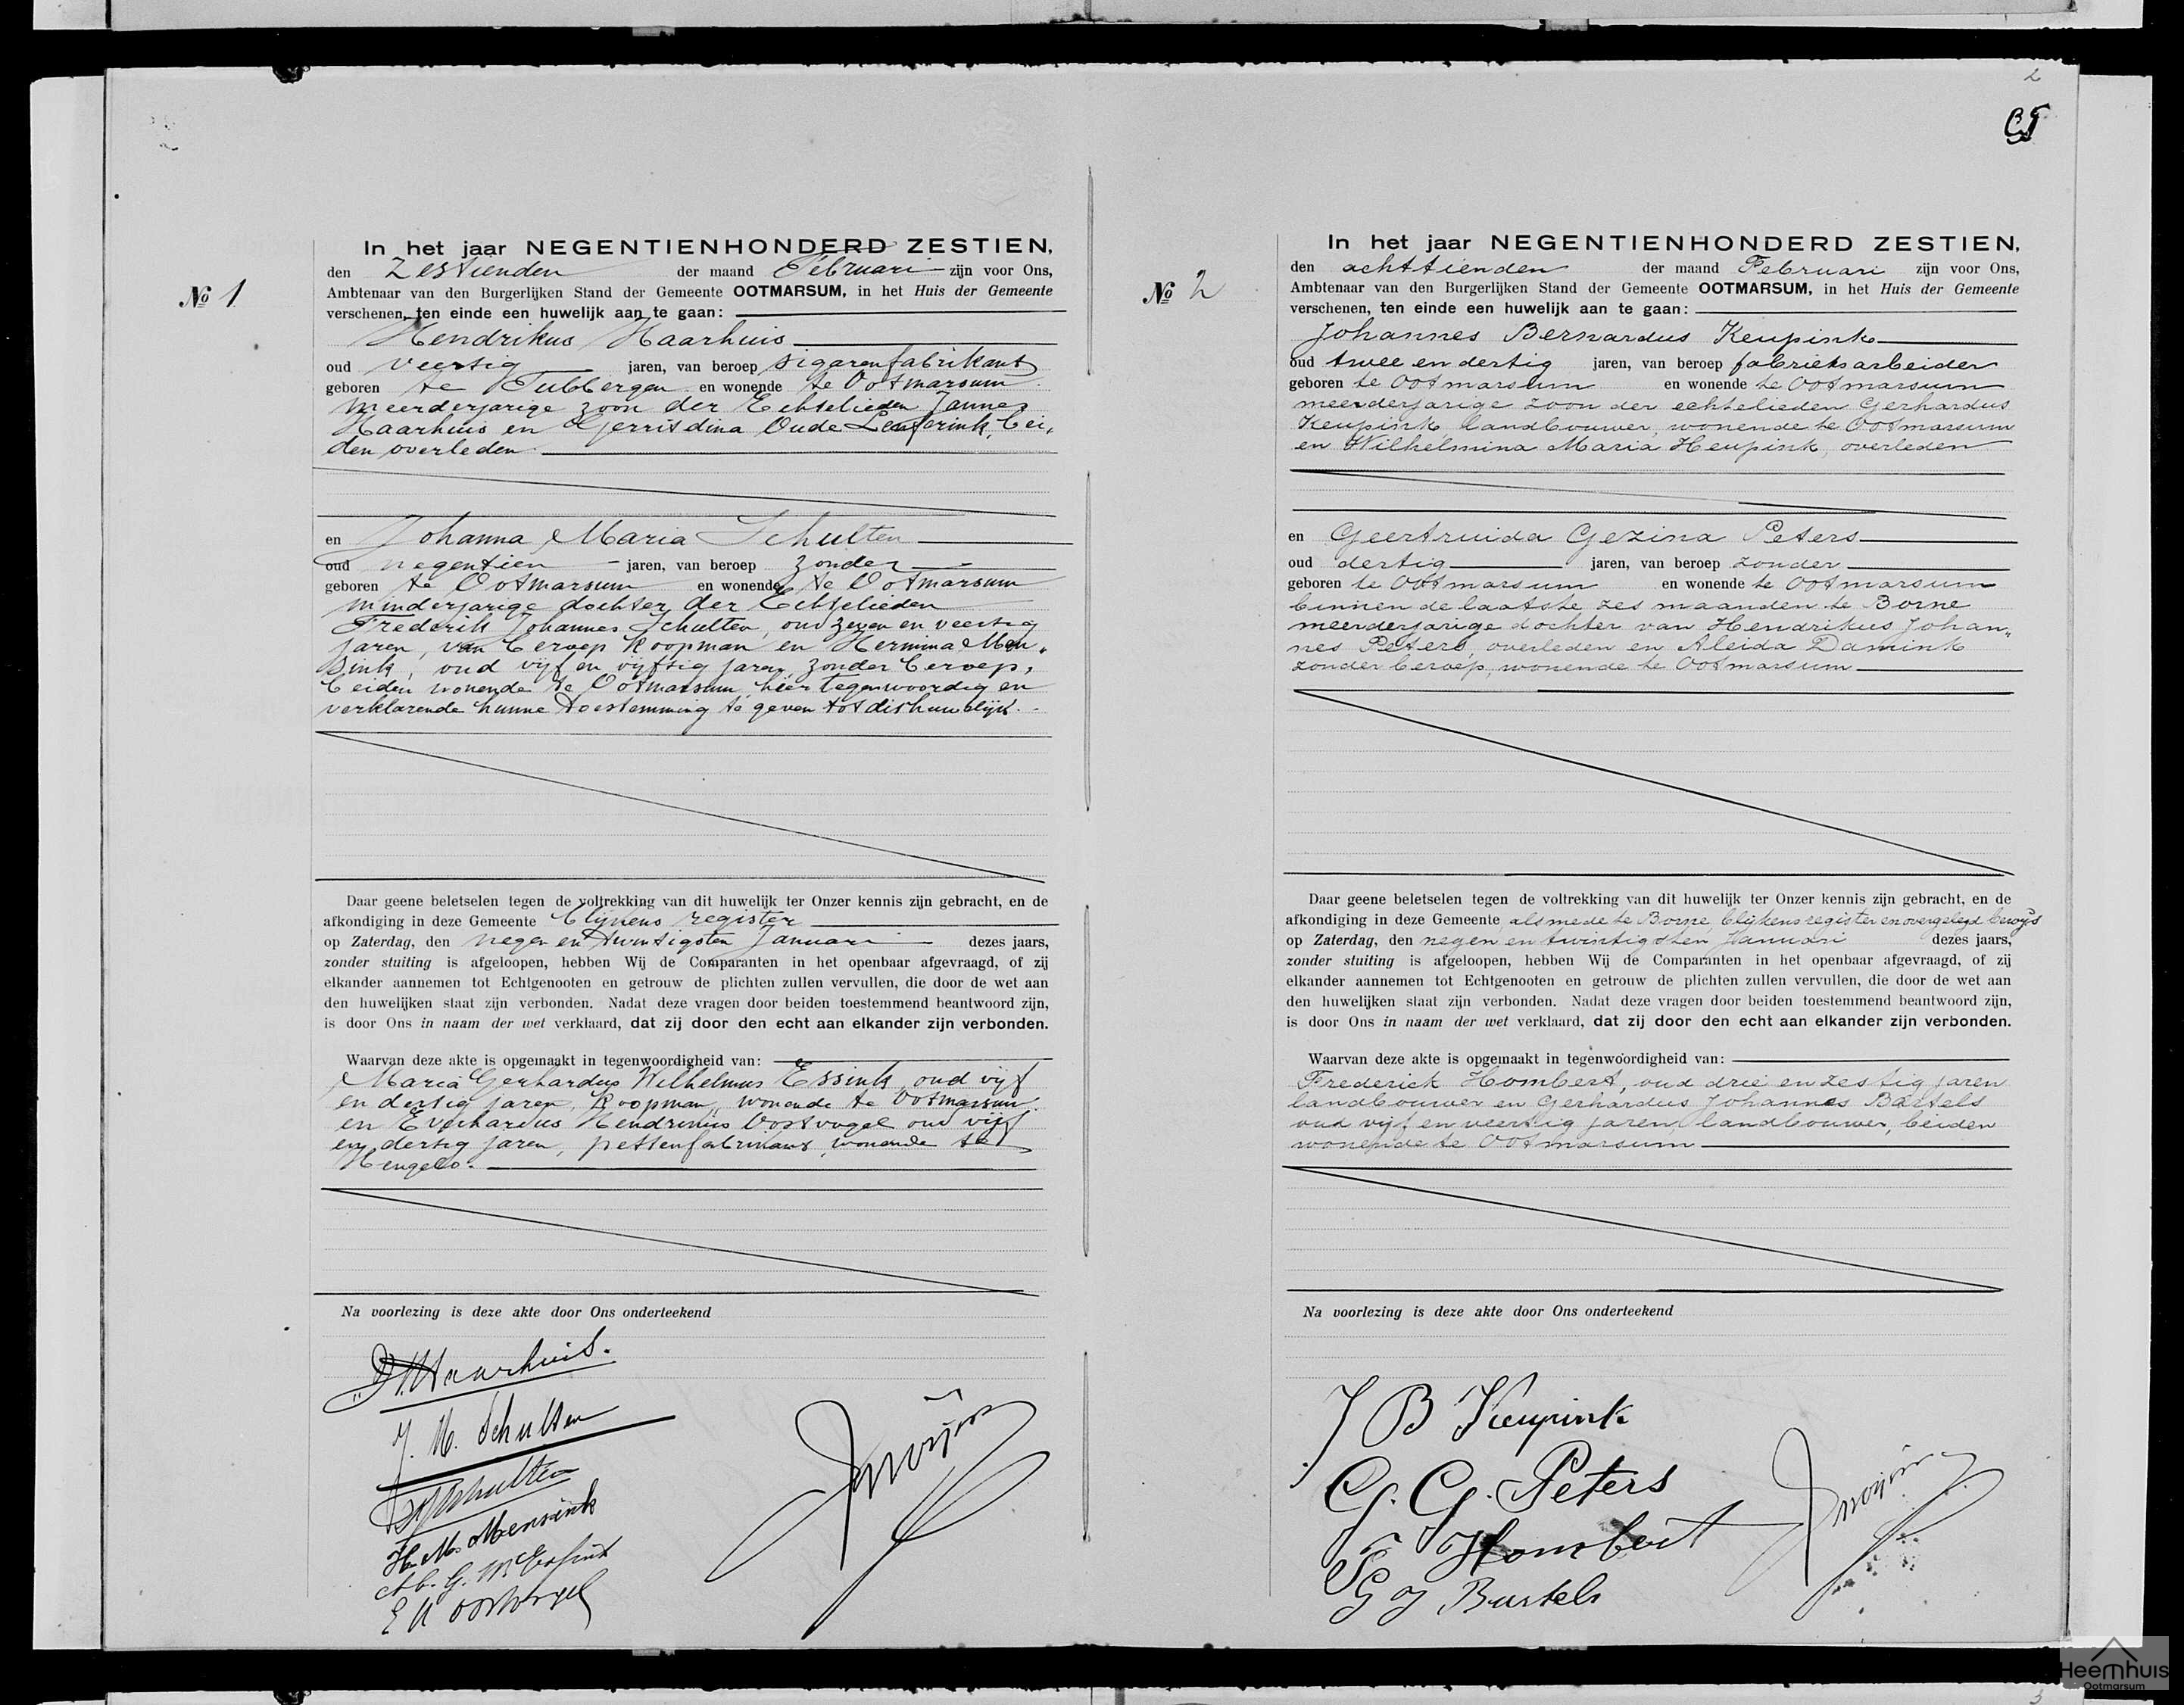 2
No 1
In het jaar NEGENTIENHONDERD ZESTIEN,
den Zestienden der maand Februari zijn voor Ons,
Ambtenaar van den Burgerlijken Stand der Gemeente OOTMARSUM, in het Huis der Gemeente
verschenen, ten einde een huwelijk aan te gaan:
Hendrikus Haarhuis
oud veertig jaren, van beroep sigarenfabrikant
geboren te Tubbergen en wonende te Ootmarsum
meerderjarige zoon der Echtelieden Jannes
Haarhuis en Gerristdina Oude Lenferink, bei„
den overleden.
en Johanna Maria Schulten
oud negentien jaren, van beroep zonder
geboren te Ootmarsum en wonende te Ootmarsum
minderjarige dochter der Echtelieden
Frederik Johannes Schulten, oud zeven en veertig
jaren, van beroep Koopman en Hermina Men„
sink, oud vijf en vijftig jaren, zonder beroep,
beiden wonende te Ootmarsum, hier tegenwoordig en
verklarende hunne toestemming te geven tot dit huwelijk.
Daar geene beletselen tegen de voltrekking van dit huwelijk ter Onzer kennis zijn gebracht, en de
afkondiging in deze Gemeente blijkens register
op Zaterdag, den negen en twintigsten Januari dezes jaars,
zonder stuiting is afgeloopen, hebben Wij de Comparanten in het openbaar afgevraagd, of zij
elkander aannemen tot Echtgenooten en getrouw de plichten zullen vervullen, die door de wet aan
den huwelijken staat zijn verbonden. Nadat deze vragen door beiden toestemmend beantwoord zijn,
is door Ons in naam der wet verklaard, dat zij door den echt aan elkander zijn verbonden.
Waarvan deze akte is opgemaakt in tegenwoordigheid van:
Maria Gerhardus Wilhelmus Essink, oud vijf
en dertig jaren, Koopman, wonende te Ootmarsum
en Everhardus Hendrikus Oostvogel oud vijf
en dertig jaren, pettenfabrikant, wonende te
Hengelo.
Na voorlezing is deze akte door Ons onderteekend
Haarhuis.
J. M. Schulten
Schulten
H. M. Mensink
E H Oostvogel
No 2
In het jaar NEGENTIENHONDERD ZESTIEN,
den achttienden der maand Februari zijn voor Ons,
Ambtenaar van den Burgerlijken Stand der Gemeente OOTMARSUM, in het Huis der Gemeente
verschenen, ten einde een huwelijk aan te gaan:
Johannes Bernardus Keupink
oud twee en dertig jaren, van beroep fabrieksarbeider
geboren te Ootmarsum en wonende te Ootmarsum
meerderjarige zoon der echtelieden Gerhardus
Keupink landbouwer, wonende te Ootmarsum
en Wilhelmina Maria Heupink, overleden
en Geertruida Gezina Peters
oud dertig jaren, van beroep zonder
geboren te Ootmarsum en wonende te Ootmarsum
binnen de laatste zes maanden te Borne
meerderjarige dochter van Hendrikus Johan„
nes Peters, overleden en Aleida Damink
zonder beroep, wonende te Ootmarsum
Daar geene beletselen tegen de voltrekking van dit huwelijk ter Onzer kennis zijn gebracht, en de
afkondiging in deze Gemeente alsmede te Borne, blijkens register en overgelegd bewijs
op Zaterdag, den negen en twintigsten Januari dezes jaars,
zonder stuiting is afgeloopen, hebben Wij de Comparanten in het openbaar afgevraagd, of zij
elkander aannemen tot Echtgenooten en getrouw de plichten zullen vervullen, die door de wet aan
den huwelijken staat zijn verbonden. Nadat deze vragen door beiden toestemmend beantwoord zijn,
is door Ons in naam der wet verklaard, dat zij door den echt aan elkander zijn verbonden.
Waarvan deze akte is opgemaakt in tegenwoordigheid van:
Frederick Hombert, oud drie en zestig jaren
landbouwer en Gerhardus Johannes Bartels
oud vijf en veertig jaren, landbouwer, beiden
wonende te Ootmarsum
Na voorlezing is deze akte door Ons onderteekend
J B Keupink
G. G. Peters
F Hombert
G J Bartels
Heemhuis
Ootmarsum
3